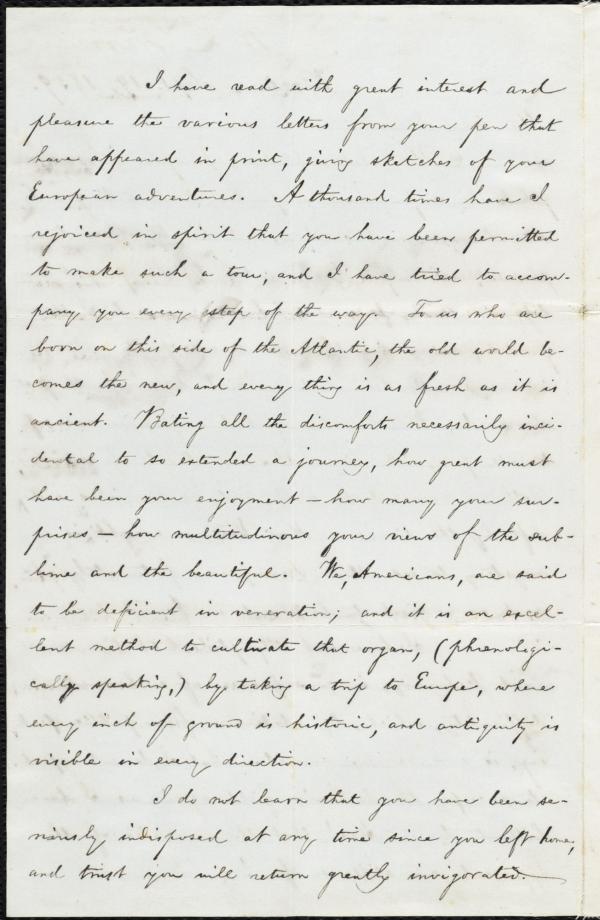 I have read with great interest and
pleasure the various letters from your pen that
have appeared in print, giving sketches of your
European adventures. A thousand times have I
rejoiced in spirit that you have been permitted
to make such a tour, and I have tried to accom-
pany you every step of the way. To us who are
born on this side of the Atlantic, the old world be-
comes the new, and every thing is as fresh as it is
ancient. Bating all the discomforts necessarily inci-
dental to so extended a journey, how great must
have been your enjoyment — how many your sur-
prises — how multitudinous your views of the sub-
lime and the beautiful. We, Americans, are said
to be deficient in veneration; and it is an excel-
lent method to cultivate that organ, (phrenologi-
cally speaking,) by taking a trip to Europe, where
every inch of ground is historic, and antiquity is
visible in every direction.
I do not learn that you have been se-
riously indisposed at any time since you left home,
and trust you will return greatly invigorated.